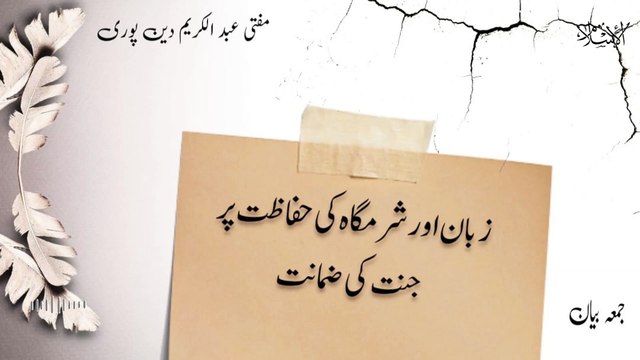 مفتی عبد الکریم دین پوری
الإسلام
زبان اور شرمگاہ کی حفاظت پر
جنت کی ضمانت
جمعہ بیان